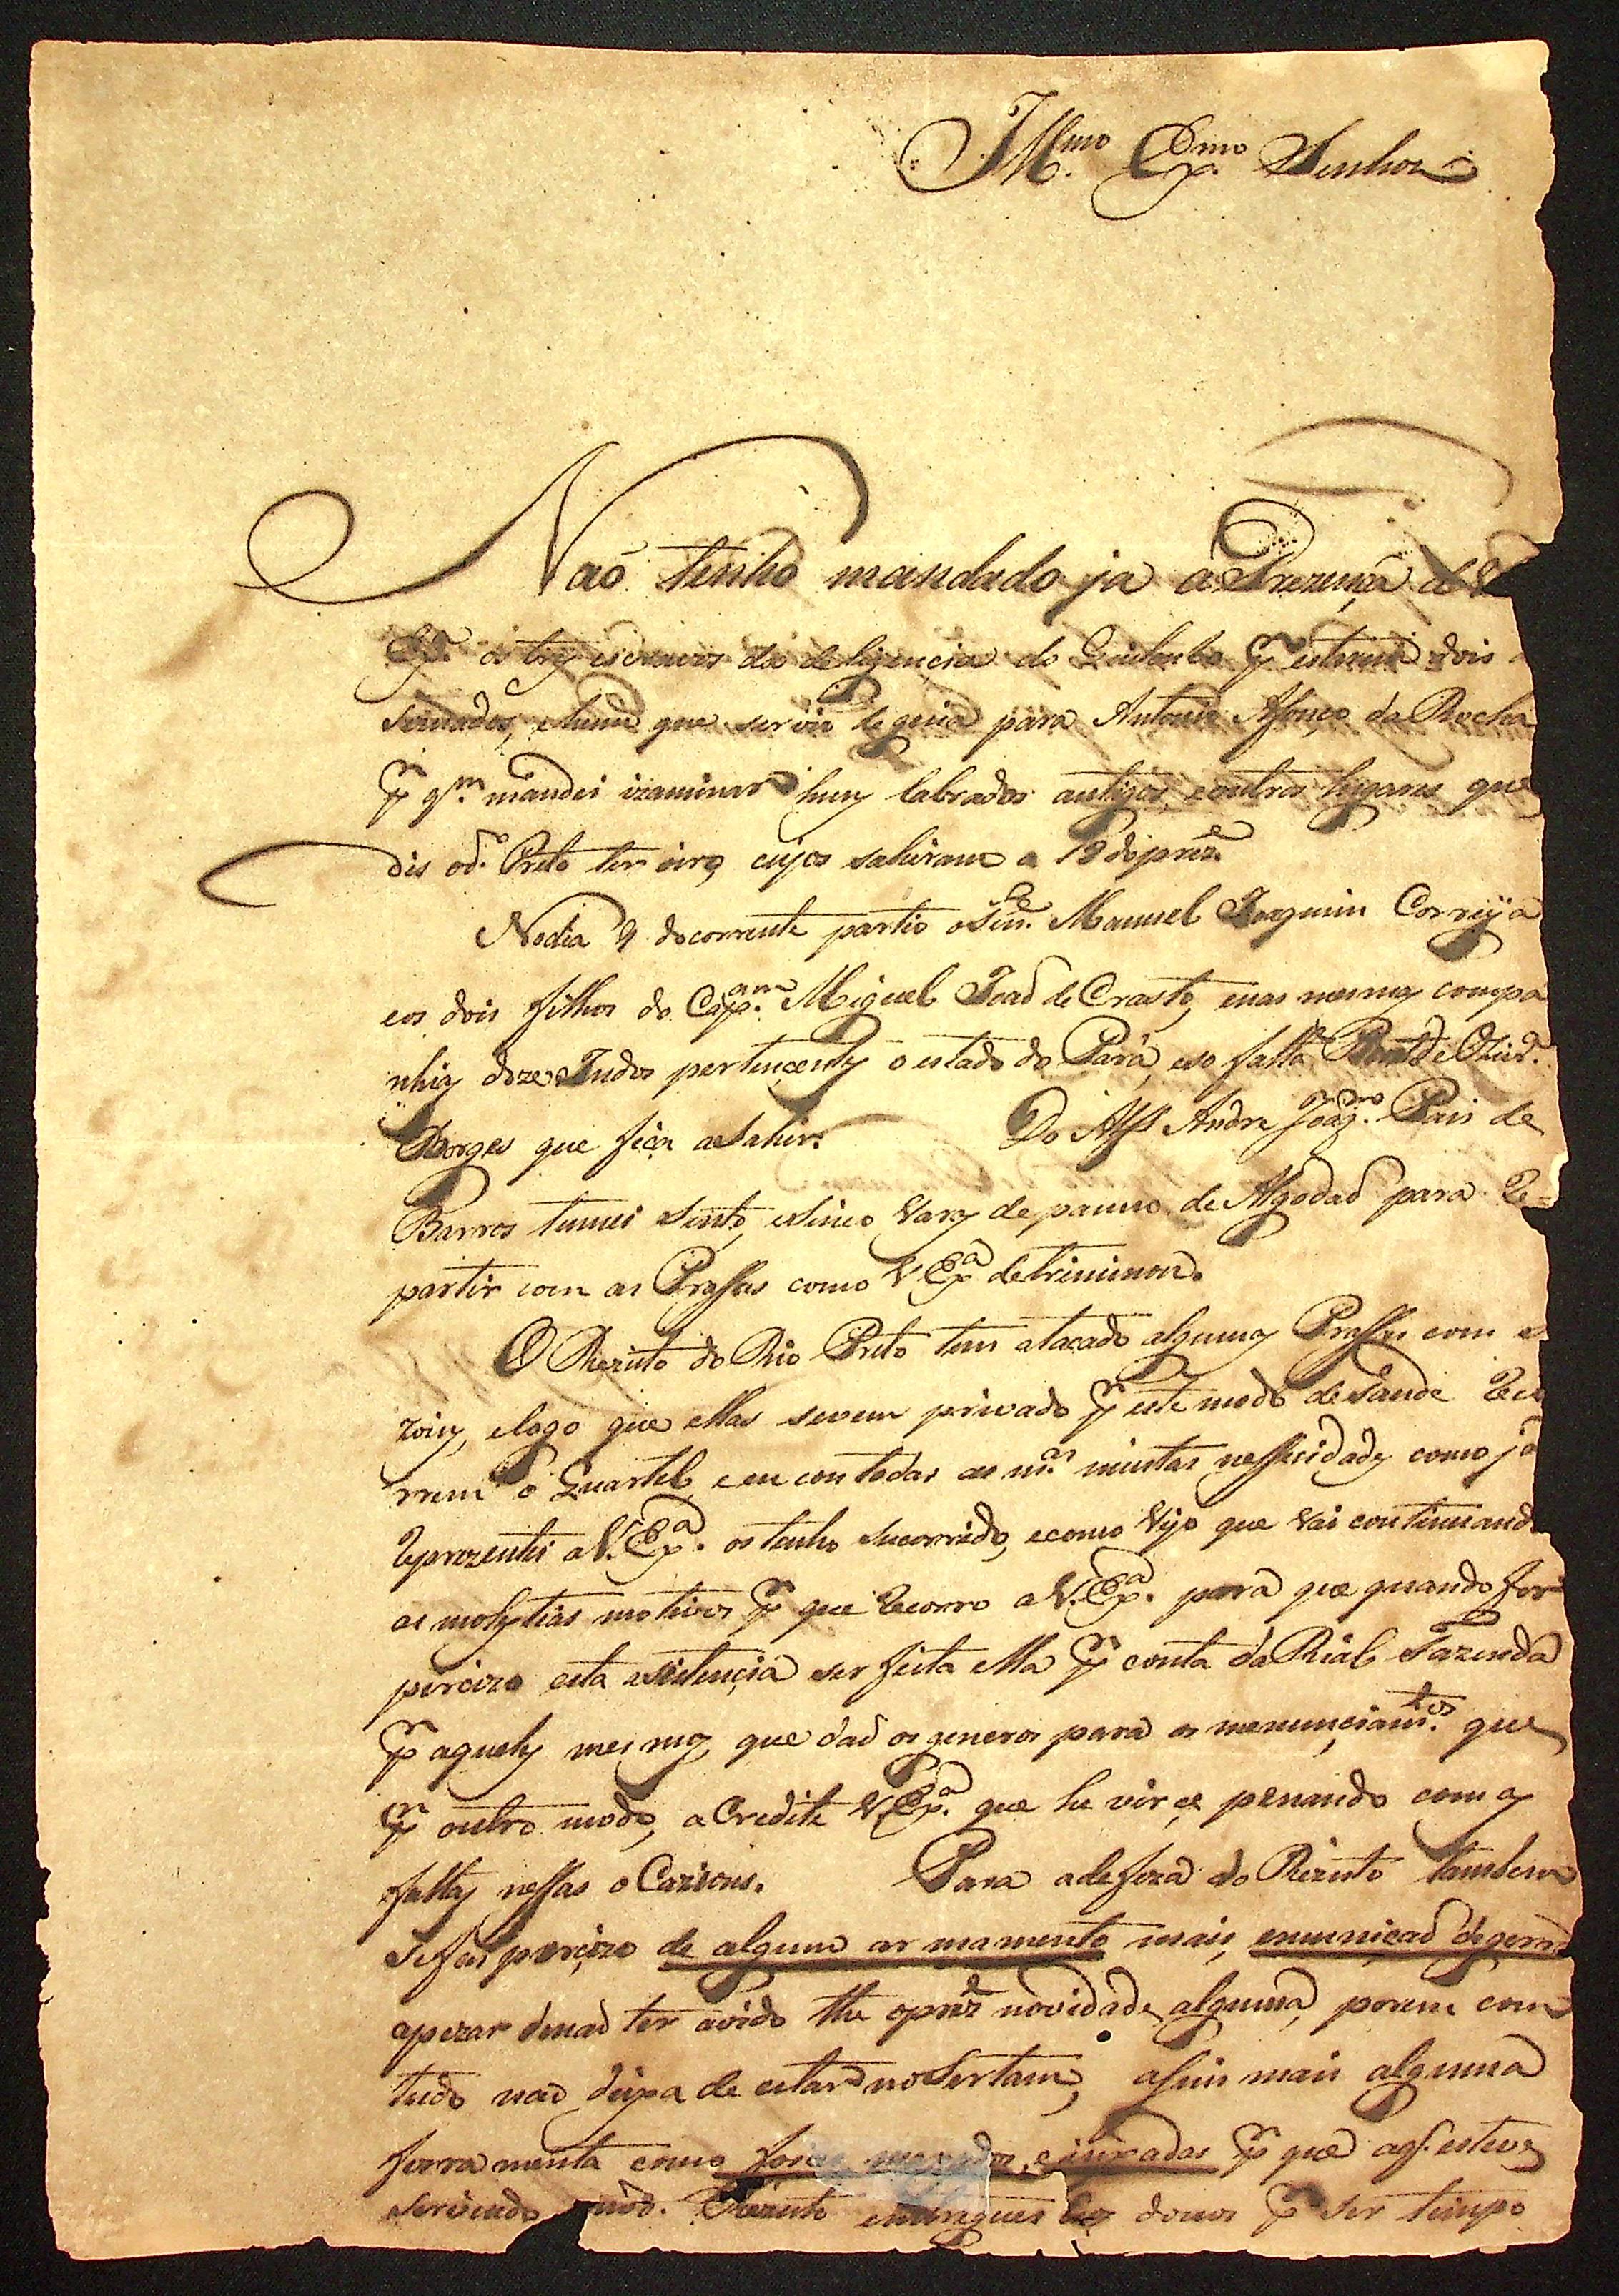 Illmo. Exmo. Senhor
Naõ tenho mandado ja a Prezença de V
Exa. os tres escravos da deligencia do Quilombo pr estarem dois a
sinados, e hum que servio de guia para Antonio Afonço da Rocha
pr qm. mandei izaminar huns labrados antigos e outros lugares que
dis od.o Preto ter oiro, cujos sahiram a 19 do prezte.
No dia 9 do corrente partio o Ten.e Manuel Joaquim Correya
e os dois filhos do Capam. Miguel Joaõ de Crasto, e nas mesmas compa
nhias doze Indos pertencentes o estado do Pará, e so falta Bento de Olivra.
Borges que fica a Sahir. Do Alfs Andre Joaqm. Pais de
Barros tumei sento, e sinco varas de panno de Algodaõ para Re=
partir com as Prassas como V Exa detriminou.
O Rezisto do Rio Preto tem atacado algumas Prassas com se
zoins, e logo que ellas sevem privado pr este modo de saude Reco
rrem o Quartel, e eu con todas as mas. minstas nessicidades como já
Reprezentei a V. Exa. os tenho sucorrido, e como Vejo que vai continuando
as molestias motivos pr que Recorro a V. Exa. para que quando for
percizo esta asistencia ser feita ella pr conta da Rial Fazenda
pr aqueles mesmos, que daõ os generos para os monunçiamtos. que
pr outro modo, a Credite V. Exa. que he virçe penando com as
faltas nessas o Cazions. Para a defeza do Rezisto tambem
se fas percizo de algum armamento mais, e muniçaõ de gerra
apezar de naõ ter avido the o prezte novidade alguma, porem com
tudo naõ deixa de estar no Sertam, assim mais alguma
ferramenta como foices maxados, e inxadas pr que as q. estive
servindo no d. Rezisto entreguei aos donos pr ser tempo